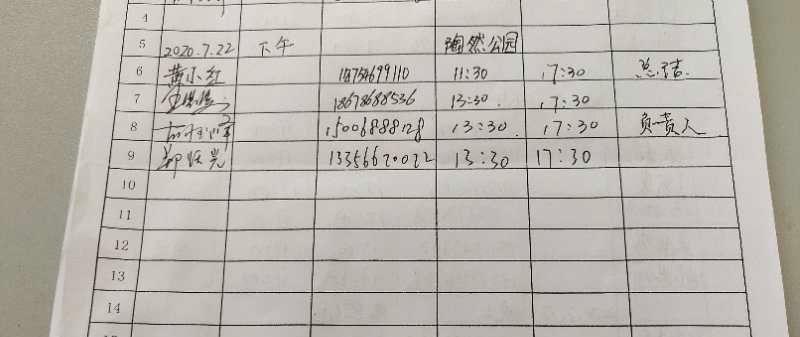 4
5 2020.7.22 下午 陶然公园
6 黄小红 11:30 17:30 总结
7 18678688536 13:30 17:30
8 15006888128 13:30 17:30 负责人
9 13356620022 13:30 17:30
10
11
12
13
14